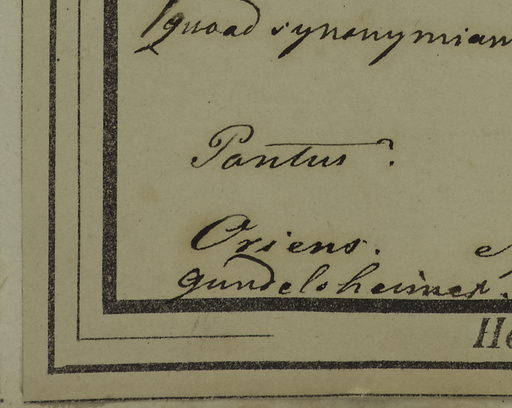 (quoad synonymiam
Pontus?
Oriens.
gundelsheimer.
He